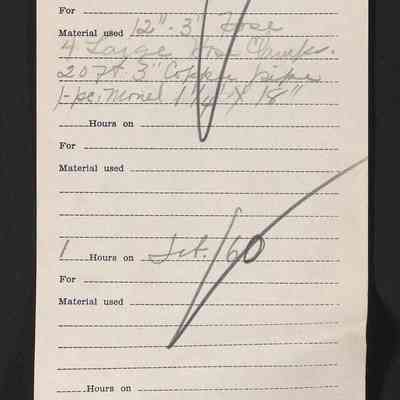 For
Material used 12" - 3" Hose
4 Large Hose Clamps.
20 ft 3" Copper pipe
1-pc. Monel 1 1/4" X 18"
Hours on
For
Material used
1 Hours on /60
For
Material used
Hours on